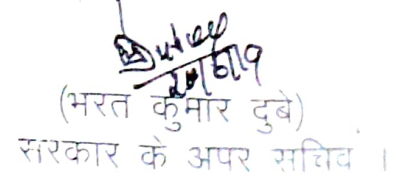 (भरत कुमार दुबे)
सरकार के अपर सचिव ।